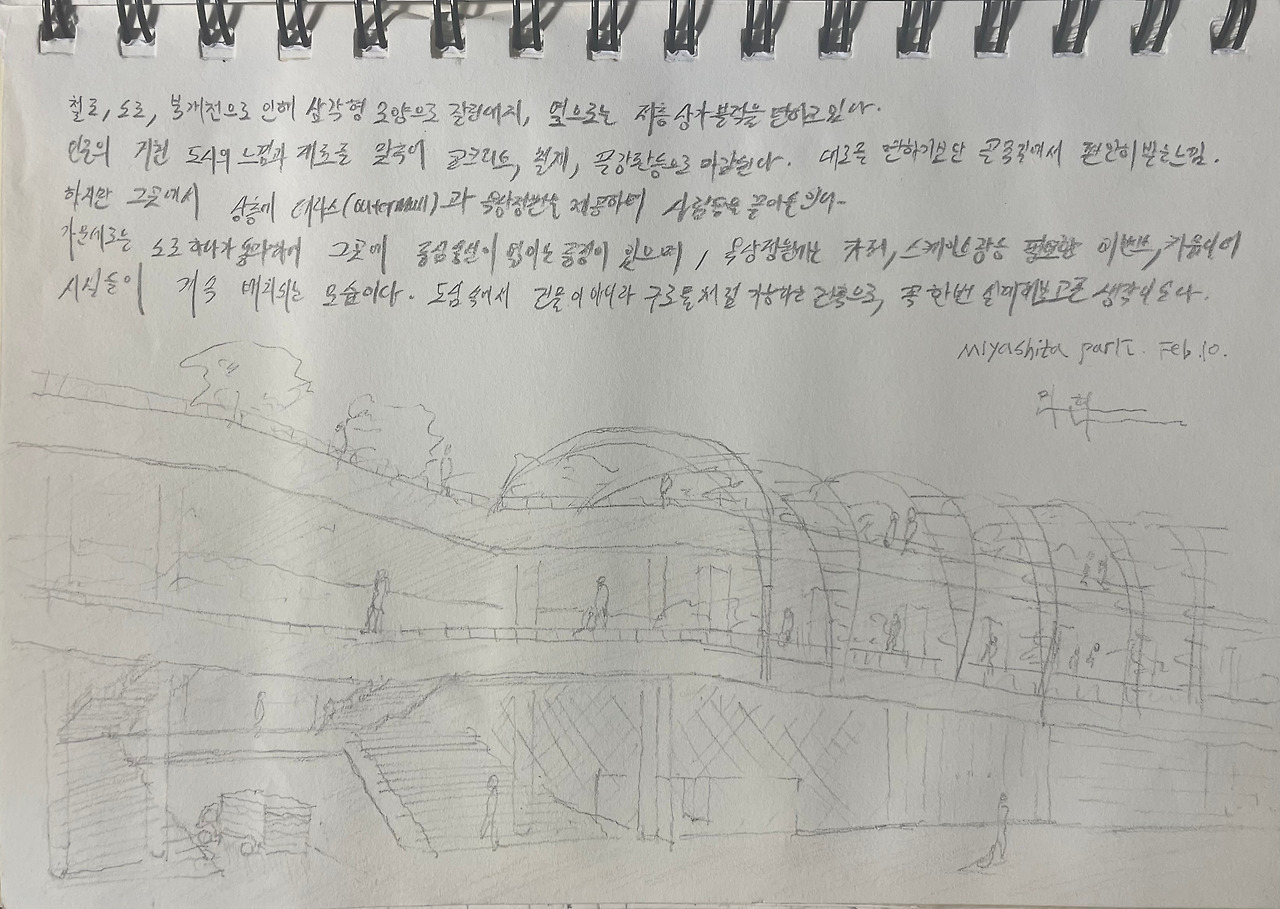 철로, 도로, 복개천으로 인해 삼각형 모양으로 갈린대지, 옆으로는 저층 상가 블럭을 면하고있다.
거친 도시의 느낌과 재료를 맞추어 콘크리트, 철재, 난간등으로 마감된다. 대로를 면하기보단 골목길에서 편안히 받을느낌.
하지만 그곳에서 상층에 테라스(outermall)과 옥상정원을 제공하여 사람들을 끌어올린다.
가운데로는 도로하나가 통과하여 그곳에 중심동선이 엮이는 풍경이 있으며, 옥상정원에는 카페, 스케이트장등 필요한 이벤트,
시설들이 계속 배치되는 모습이다. 도심속에서 건물이 아니라 구조물처럼 기능하는 건축으로, 꼭 한번 설계해보고픈 생각이든다.
Miyashita park. Feb.10.